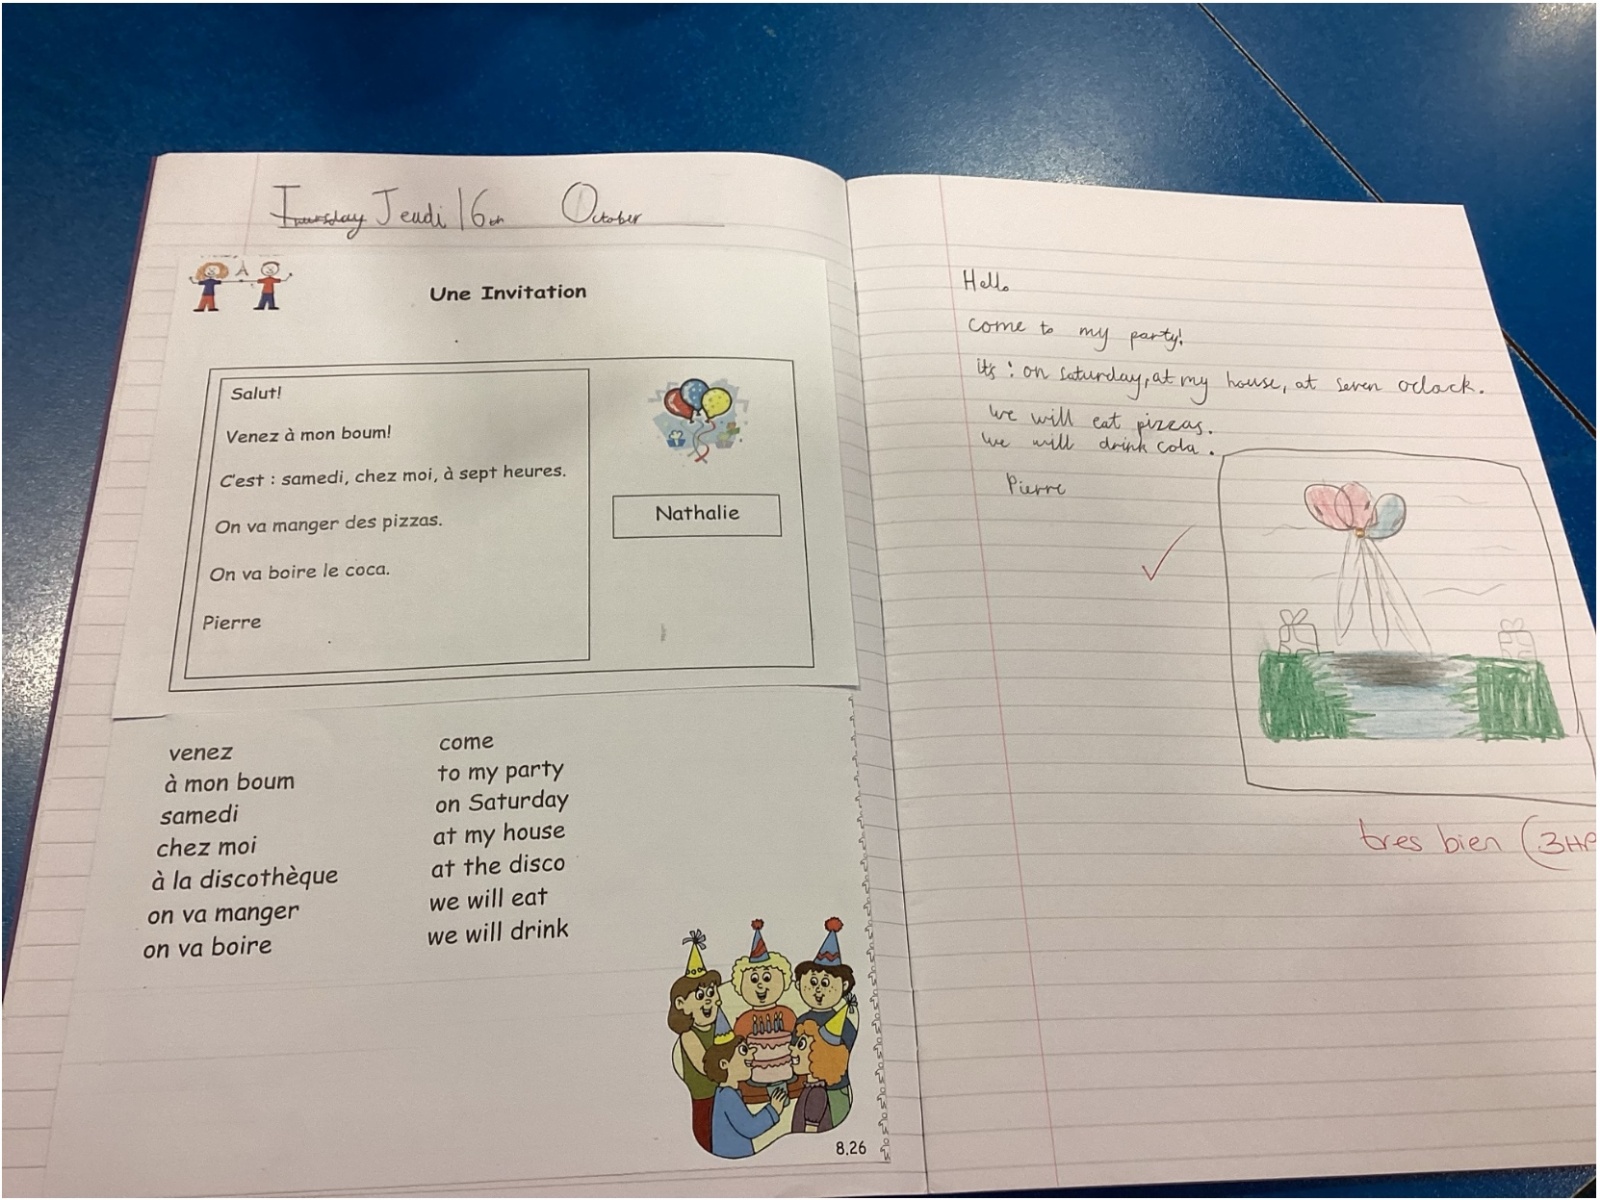 Thursday Jeudi 16th October
Une Invitation
Salut!
Venez à mon boum!
C'est : samedi, chez moi, à sept heures.
On va manger des pizzas.
On va boire le coca.
Pierre
Nathalie
venez come
à mon boum to my party
samedi on Saturday
chez moi at my house
à la discothèque at the disco
on va manger we will eat
on va boire we will drink
8.26
Hello
come to my party!
its : on saturday, at my house, at seven oclock.
we will eat pizzas.
we will drink cola.
Pierre
tres bien (3HP